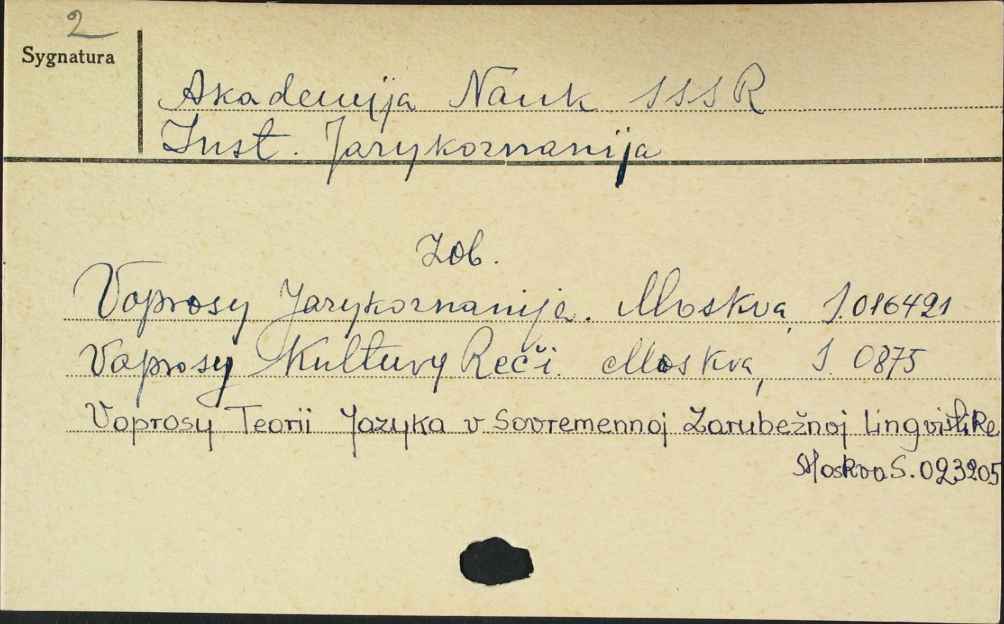 2
Sygnatura
Akademija Nauk SSSR
Inst. Jazykoznanija
Zob.
Voprosy Jazykoznanija. Moskva, S.016421
Voprosy Kultury Reči. Moskva, S. 0875
Voprosy Teorii Jazyka v Sovremennoj Zarubežnoj Lingvistike
Moskva S. 023205